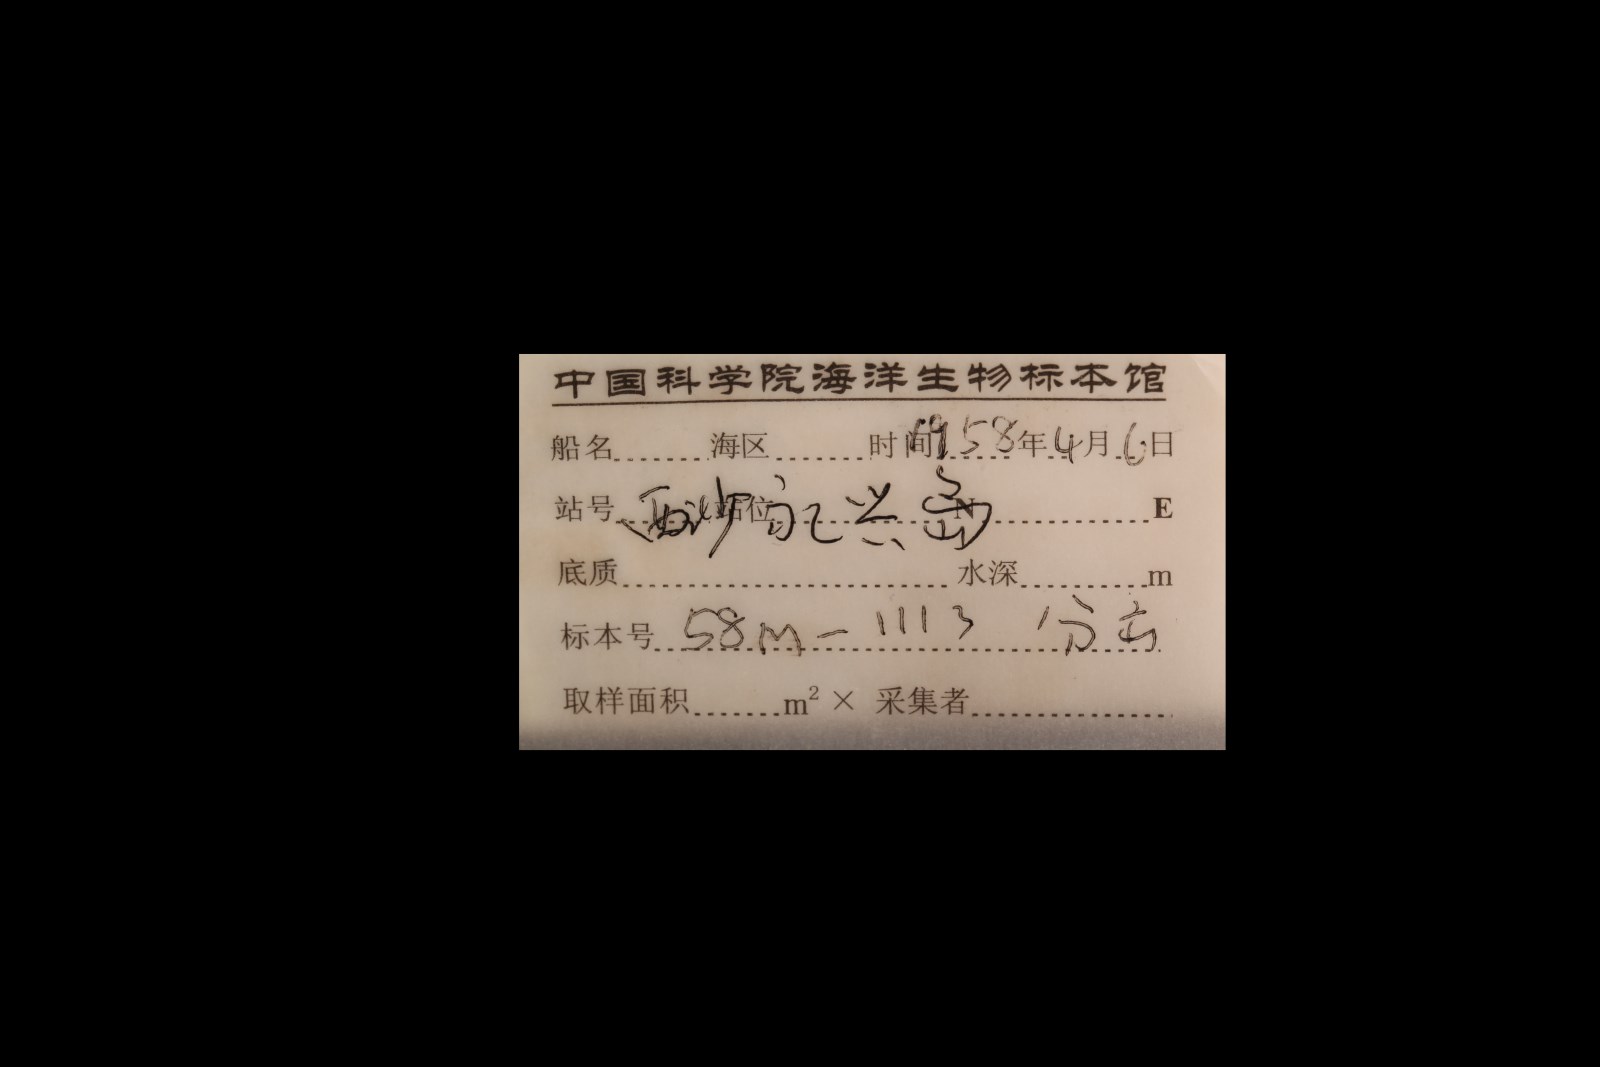 中国科学院海洋生物标本馆
船名......海区......时间1958年4月6日
站号 西沙永兴岛 站位 N E
底质 水深 m
标本号 58M-1113 分去
取样面积......m²× 采集者